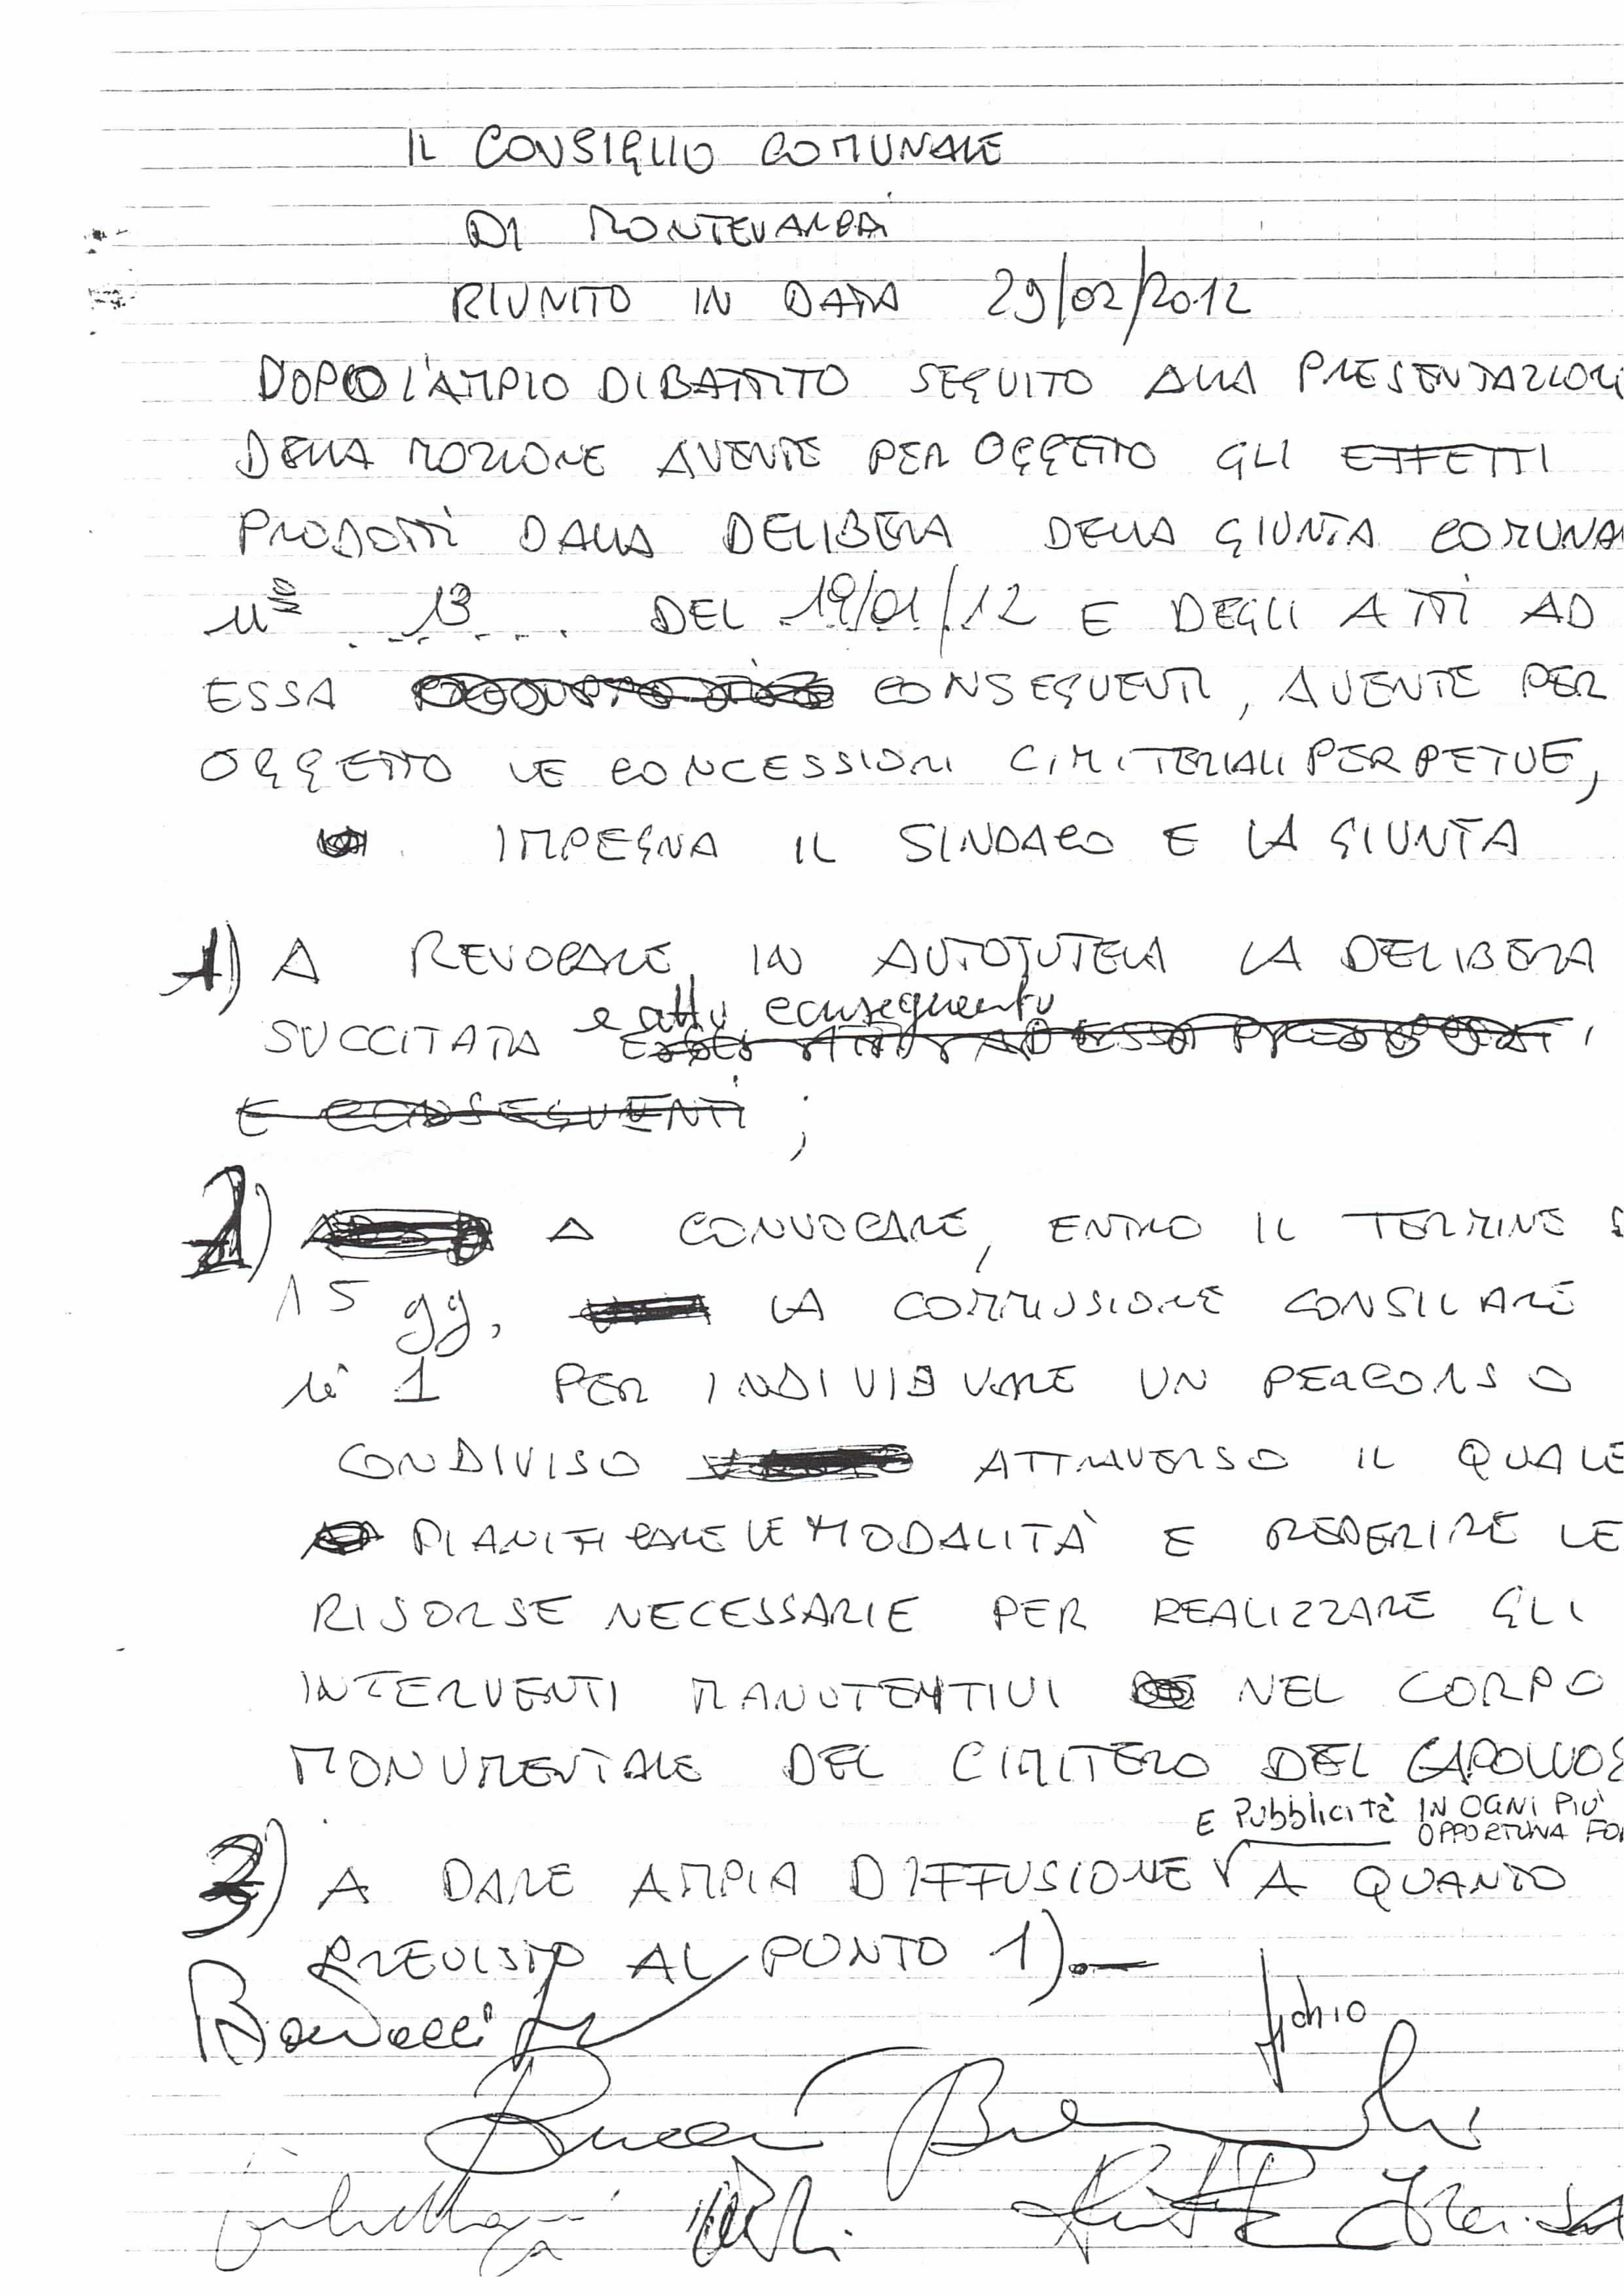 IL CONSIGLIO COMUNALE
DI MONTEVARCHI
RIUNITO IN DATA 29/02/2012
DOPO L'AMPIO DIBATTITO SEGUITO ALLA PRESENTAZION
DELLA MOZIONE AVENTE PER OGGETTO GLI EFFETTI
PRODOTTI DALLA DELIBERA DELLA GIUNTA COMUNA
nº 13 DEL 19/01/12 E DEGLI ATTI AD
ESSA CONSEGUENTI, AVENTE PER
OGGETTO LE CONCESSIONI CIMITERIALI PERPETUE,
IMPEGNA IL SINDACO E LA GIUNTA
1) A REVOCARE, IN AUTOTUTELA LA DELIBERA
e atti conseguenti
SUCCITATA
E CONSEGUENTI ;
2) A CONVOCARE, ENTRO IL TERMINE
15 gg, LA COMMISSIONE CONSILIARE
n° 1 PER INDIVIDUARE UN PERCORSO
CONDIVISO ATTRAVERSO IL QUALE
PIANIFICARE LE MODALITÀ E REPERIRE LE
RISORSE NECESSARIE PER REALIZZARE GLI
INTERVENTI MANUTENTIVI NEL CORPO
MONUMENTALE DEL CIMITERO DEL CAPOLUOG
E Pubblicità IN OGNI PIÙ
OPPORTUNA FOR
3) A DARE AMPIA DIFFUSIONE A QUANTO
PREVISTO AL PUNTO 1).—